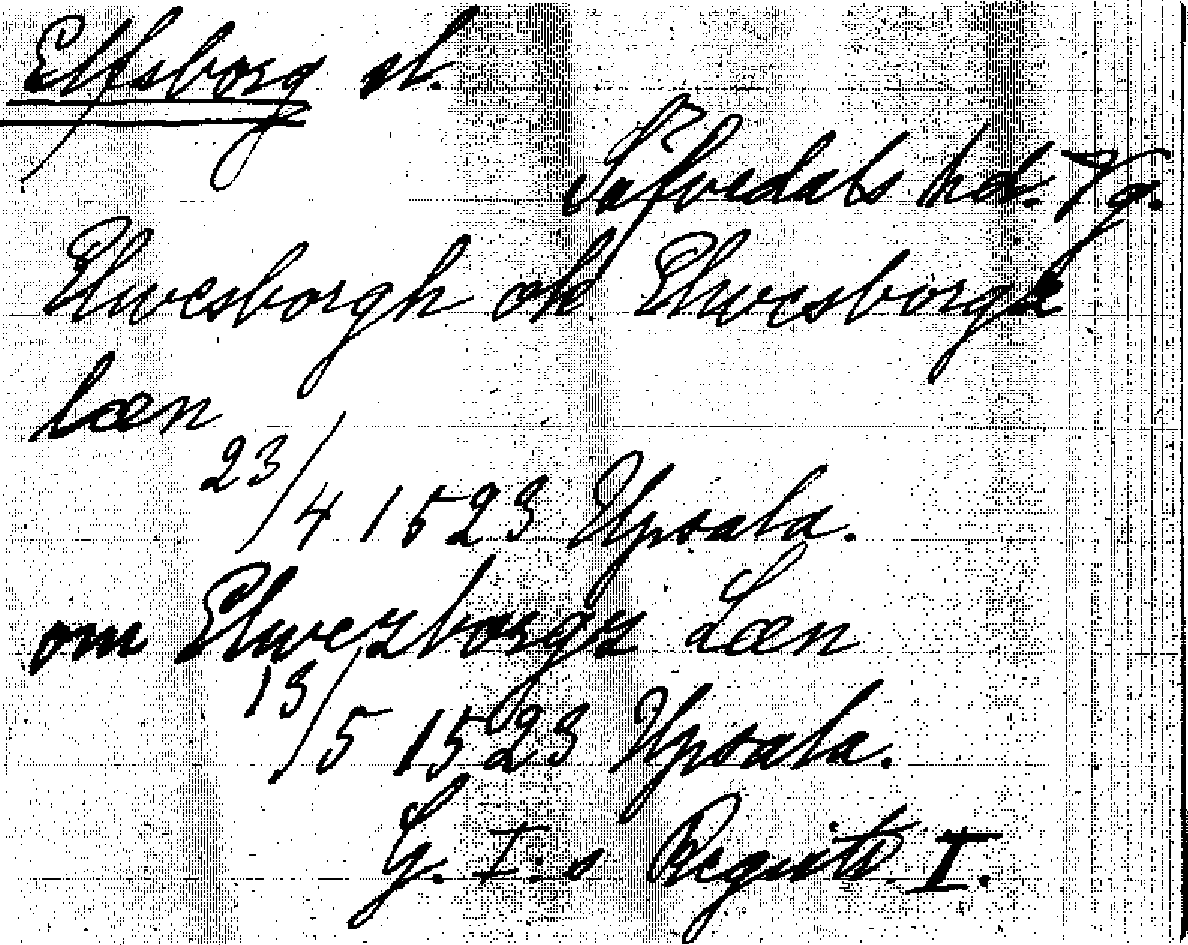 Elfsborg sl.
Säfvedals hd. Vg.
Elwesborgh ok Elwesborgh
læn
23/4 1523 Upsala.
om Elwezborgz Læn
13/5 1523 Upsala.
G. I:s Registr. I.